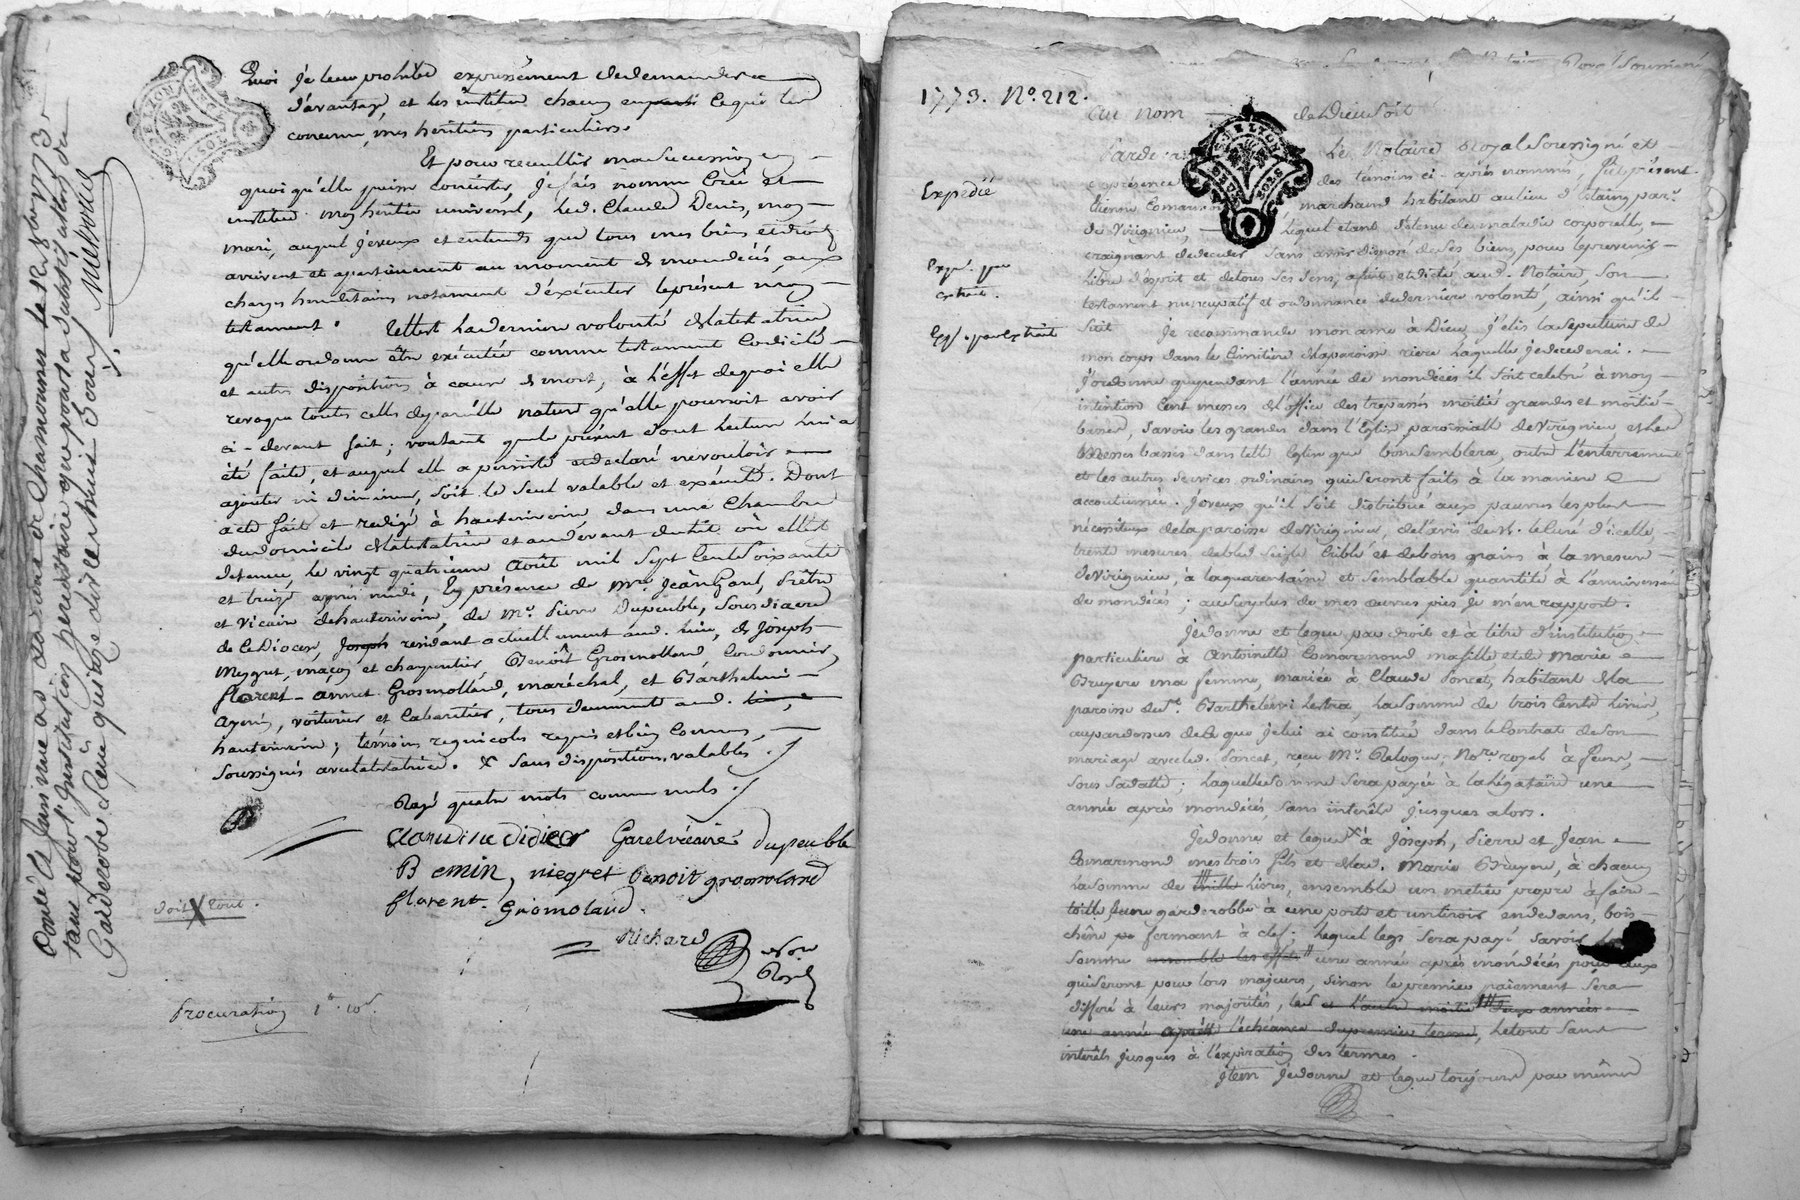 Quoi je leur prohibe expressément de demander
d'avantage, et les institue chacun en ce qui les
concerne, mes héritiers particuliers.
Et pour recueillir ma succession en
quoi qu'elle puisse consister, je fais nomme crée et
institue mon héritier universel, led. Claude Denis, mon
mari, auquel je veux et entends que tous mes biens et droits
arrivent et apartiennent au moment de mon décés, aux
charges héréditaires notamment d'éxécuter le présent mon
testament. Telle est la derniere volonté de la testatrice
qu'elle ordonne être exécutée comme testament codicile
et autre disposition à cause de mort, à l'effet de quoi elle
revoque toutes celles de pareille nature qu'elle pourroit avoir
ci-devant fait; voulant que le présent dont lecture lui a
été faite, et auquel elle a persisté et declaré ne vouloir
ajouter ni diminuer, soit le seul valable et exécuté. Dont
acte fait et redigé à hauterivoire, dans une chambre
du domicile de la testatrice et au devant du lit où elle est
detenue, le vingt quatrieme août mil sept cent soixante
et treize après midi, En présence de mre. Jean Garel, prêtre
et vicaire de hauterivoire, de mr. Pierre Dupeuble, sousdiacre
de ce Diocese, Joseph residant actuellement aud. lieu, de Joseph
Meygret, maçon et charpentier, Benoît Grosmolland cordonnier
florent-annet Grosmolland, maréchal, et Barthelemi
voiturier et cabaretier, tous demeurant aud. lieu,
hauterivoire; témoins requis et bien connus,
soussignés avec la testatrice. X sans disposition valable
Rayé quatre mots comme nuls.
Claudine didier Garel vicaire dupeuble
B emin, megret benoit gromoland
florent. Gromoland.
doit X tout.
Richard
Nre
Royal
Procuration 1tt. 10s.
1773. No. 212.
Au nom de Dieu soit
Pardevant Le Notaire Royal soussigné et
en présence des témoins ci-après nommés, fut présent
Etienne Comarmond marchand habitant au lieu d'Etaing parse.
de Virignieu, Lequel etant détenu de maladie corporelle,
craignant de deceder sans avoir disposé de ses biens, pour le prevenir
libre d'esprit et de tous ses sens, a fait et dicté aud. Notaire, son
testament nuncupatif et ordonnance de derniere volonté, ainsi qu'il
suit Je recommande mon ame à Dieu, j'elis la sepulture de
mon corps dans le cimitiere de la paroisse riere laquelle je decederai.
J'ordonne que pendant l'année de mon décés il soit celebré à mon
intention cent messes de l'office des trepassés moitié grandes et moitié
basses, savoir les grandes dans l'Eglise paroissialle de Virignieu, et les
Messes basses dans telle Eglise que bon semblera, outre l'enterrement
et les autres services ordinaires qui seront faits à la maniere
accoutumée. Je veux qu'il soit distribué aux pauvres les plus
nécessiteux de la paroisse de Virignieu, de l'avis de M. le Curé d'icelle,
trente mesures de bled seigle criblé et de bons grains à la mesure
de Virignieu, à la quarantaine et semblable quantité à l'anniversaire
de mon décés; au surplus de mes œuvres pies je m'en rapport.
Je donne et legue par droit et à titre d'institution
particuliere à Antoinette Comarmond ma fille et de Marie
Bruyere ma femme, mariée à Claude Poncet, habitant de la
paroisse de St. Barthelemi Lestra, la somme de trois cents livres,
au pardessus de ce que je lui ai constitué dans le contrat de son
mariage avec led. Poncet, reçu Me. Relogue Nore. royal à feurs,
sous sa datte; laquelle somme sera payée à la légataire une
année après mon décés, sans intérêts jusques alors.
Je donne et legue à Joseph, Pierre et Jean
Comarmond mes trois fils et de lad. Marie Bruyere, à chacun
la somme de mille livres, ensemble un métier propre à faire
toille, une garderobbe à une porte et un tiroir en dedans, bois
chêne fermant à clef. Lequel legs sera payé savoir la
somme ensemble les effets une année après mon décés pour ceux
qui seront pour lors majeurs, sinon le premier paiement sera
differé à leurs majorités, et l'autre moitié deux années
une année après l'échéance du premier terme, le tout sans
intérêts jusques à l'expiration des termes.
Item je donne et legue toujours par même
Expedié
Expé. par
extrait.
Exp. par Extrait